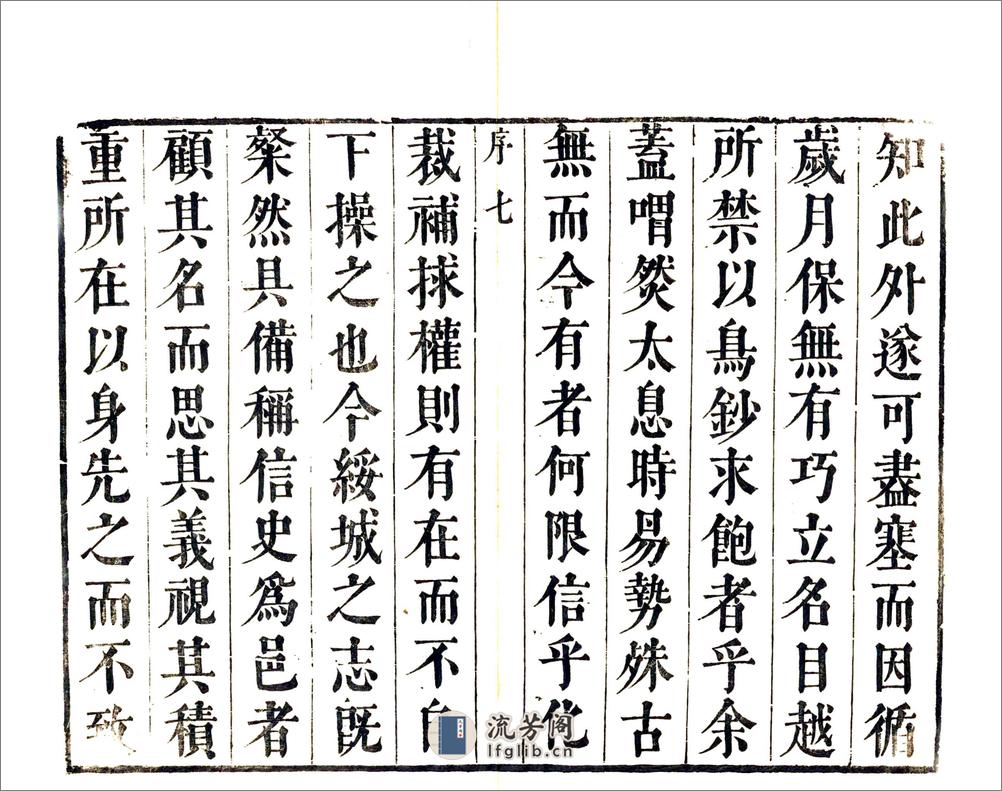 知此外遂可盡塞而因循
歲月保無有巧立名目越
所禁以鳥鈔求飽者乎余
蓋喟然太息時易勢殊古
無而今有者何限信乎化
序 七
裁補捄權則有在而不自
下操之也今綏城之志既
粲然具備稱信史爲邑者
顧其名而思其義視其積
重所在以身先之而不致
流芳阁
lfglib.cn